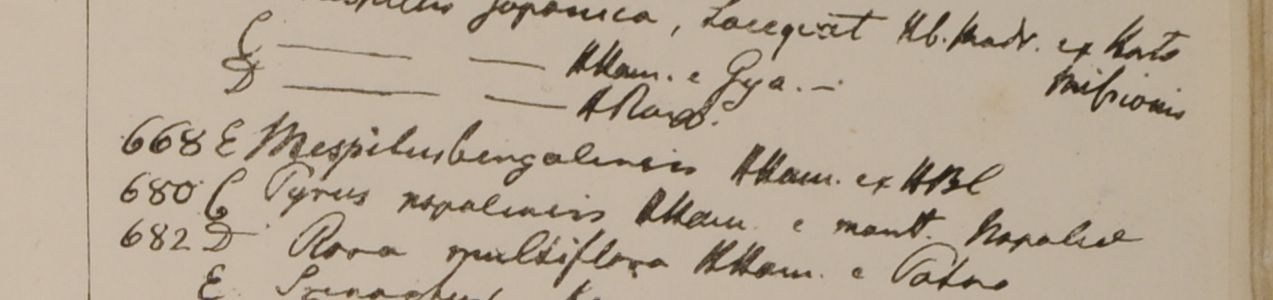 japonica, Hb. Madr. ex Horto
Missionis
C — — HHam. e Gya. —
D — — HRoxb.
668 E Mespilus bengalensis HHam. ex HBC
680 C Pyrus nepalensis HHam. e mont. Napaliae
682 D Rosa multiflora HHam. e Patna
E